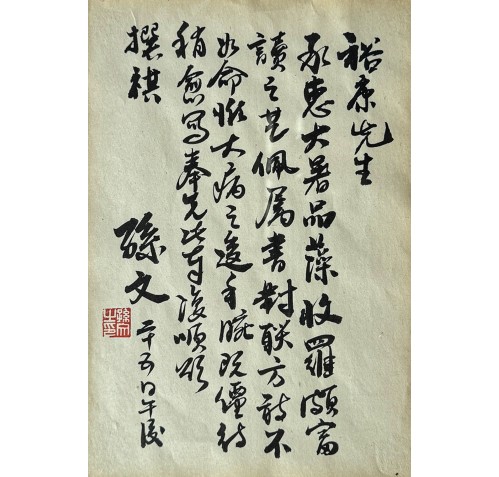 裕康先生
承惠大著品藻收羅頗富
讀之甚佩屬書對联方不
如命惟大病之後手腕既僵待
稍愈寫奉先此奉復順頌
撰祺
孫文
二十五日午後
孫文之印